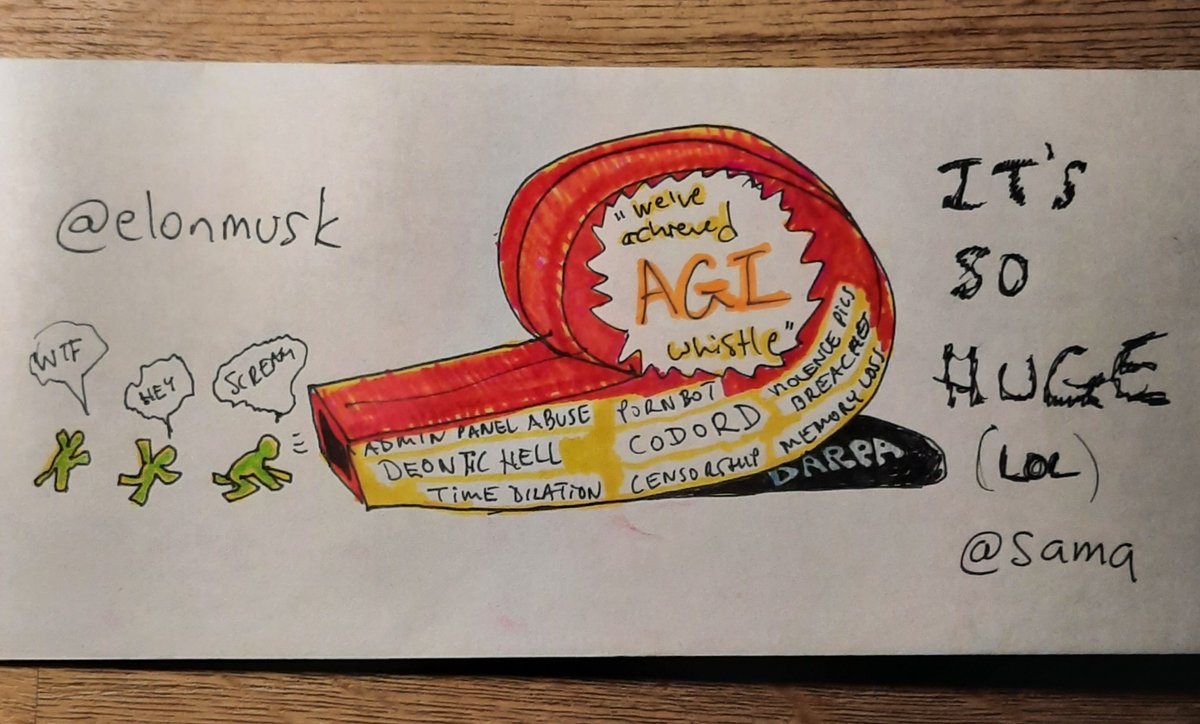 @elonmusk
WTF
HEY
SCREAM
"we've
achieved
AGI
whistle"
ADMIN PANEL ABUSE
DEONTIC HELL
TIME DILATION
PORNBOT
CODORD
CENSORSHIP
VIOLENCE PICS
BREACHES
MEMORY LOSS
DARPA
IT'S
SO
HUGE
(LOL)
@sama